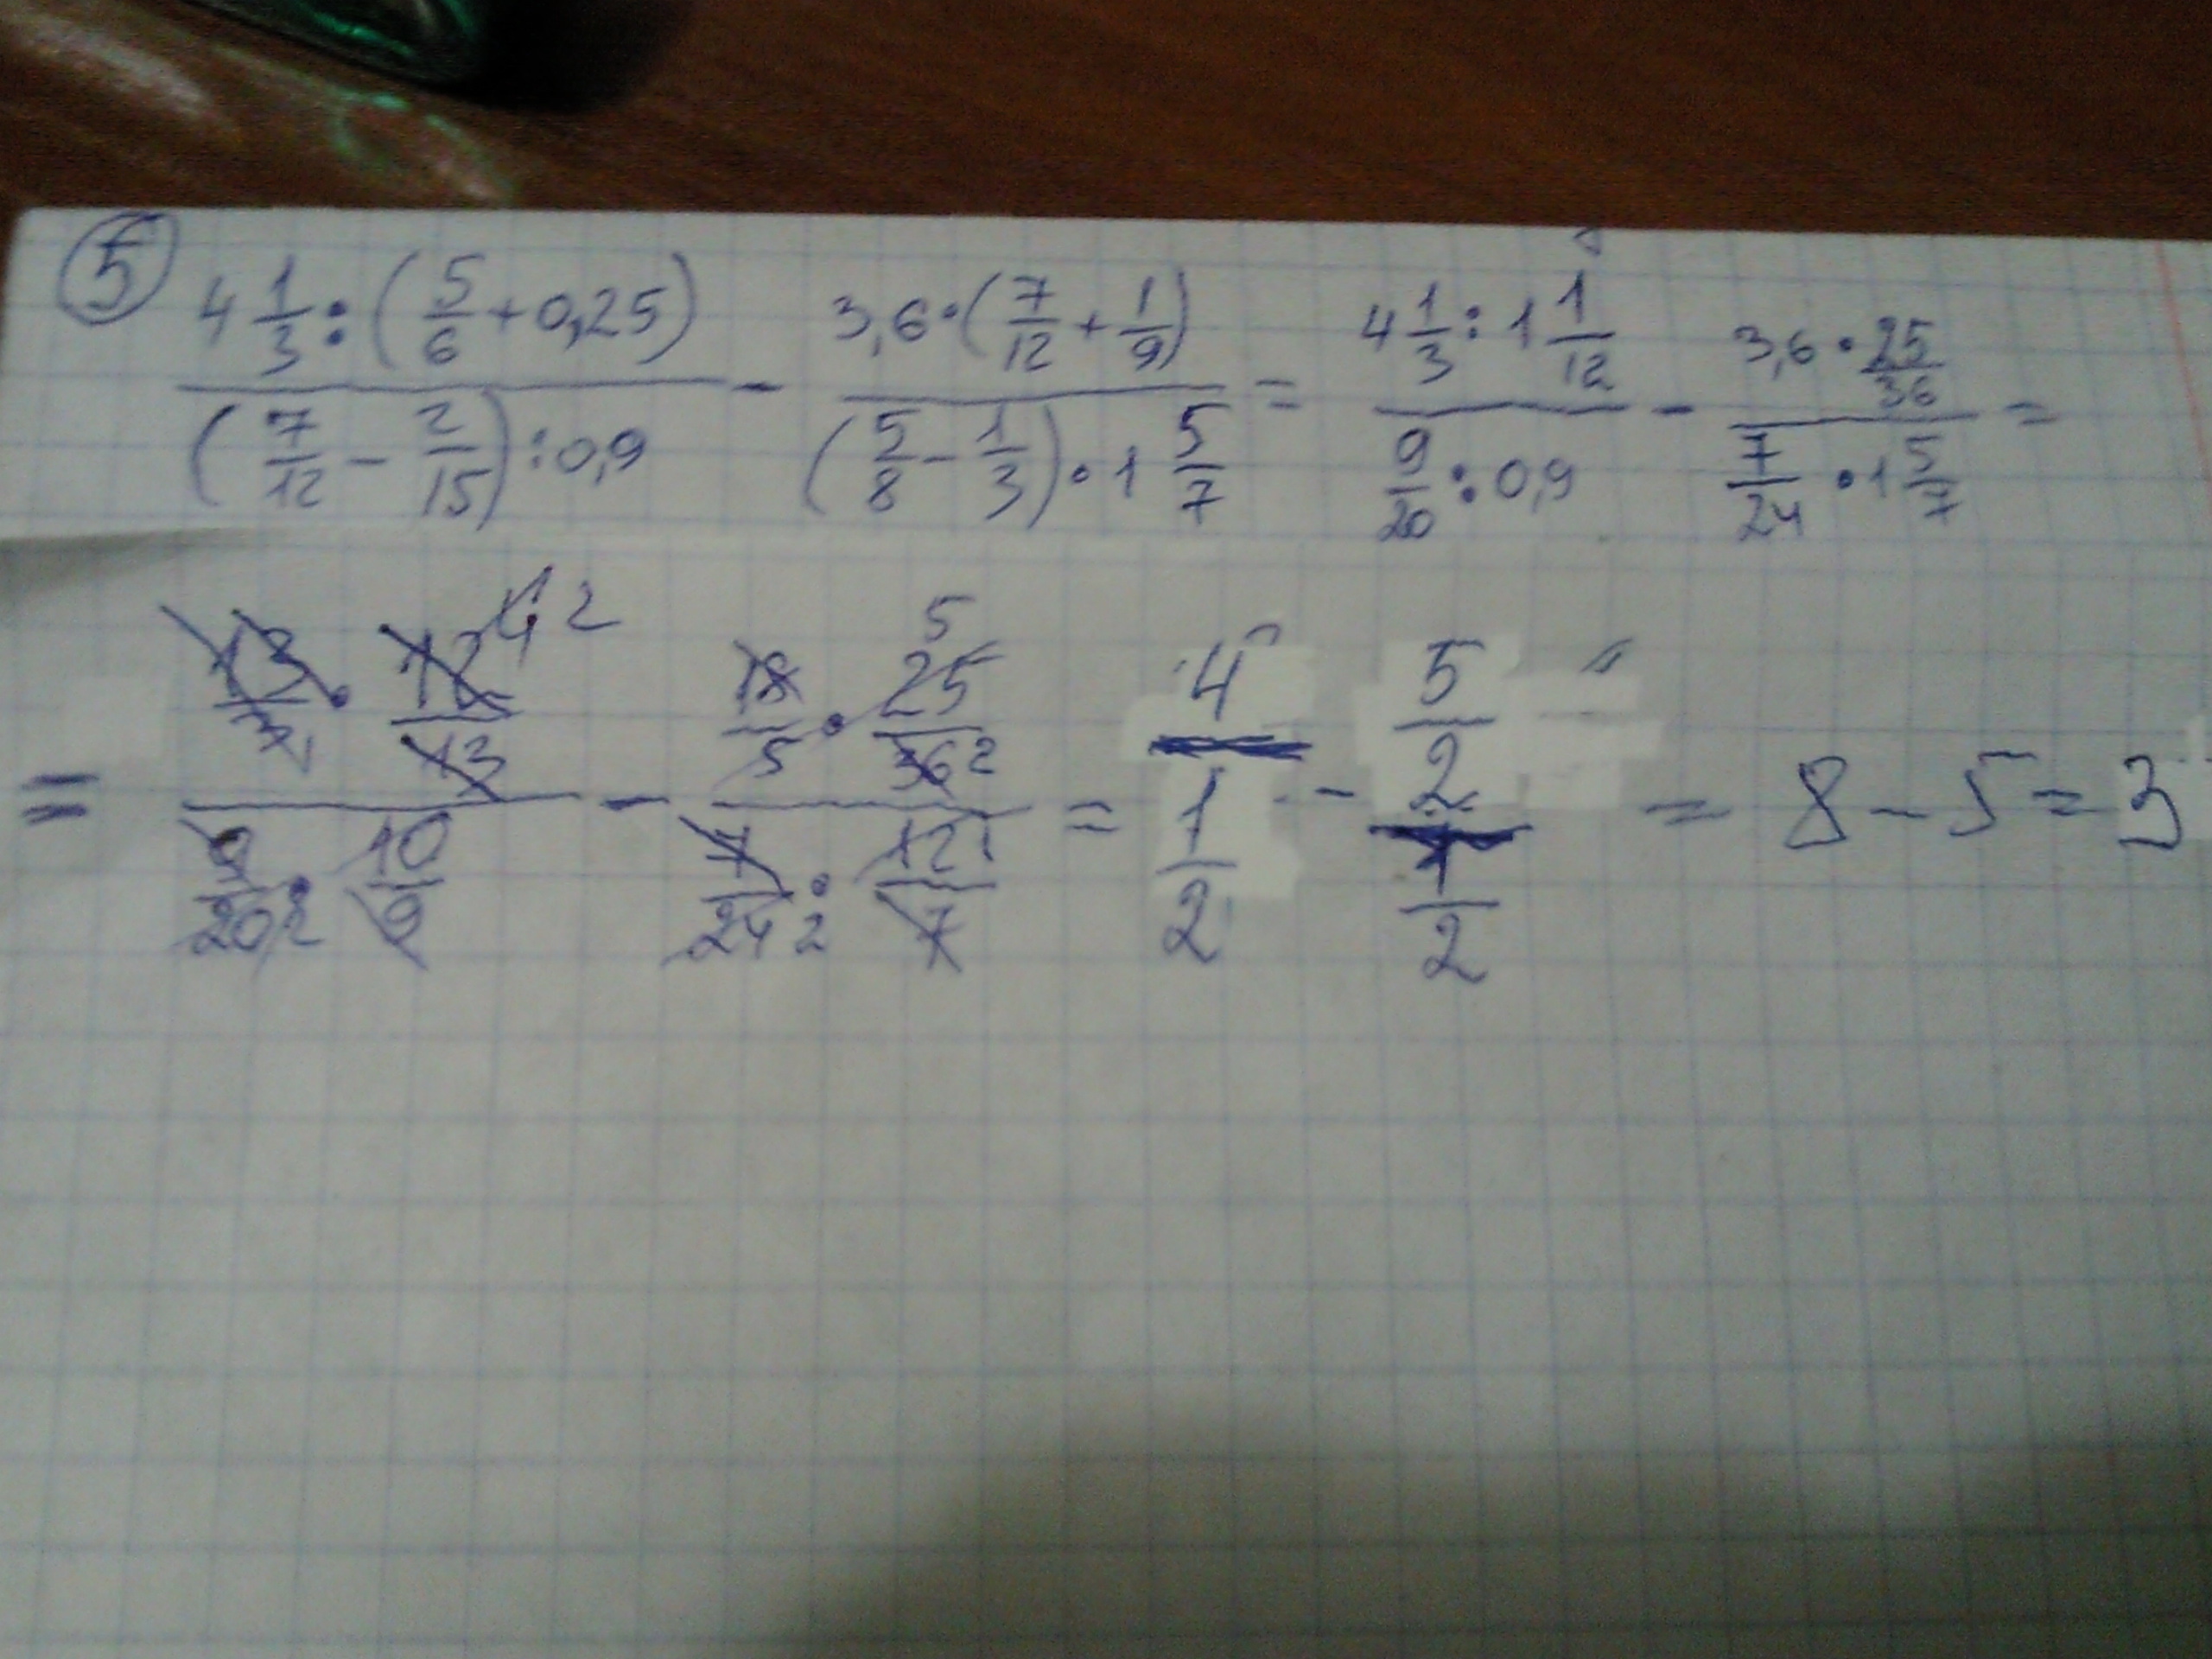 ⑤ (4 1/3 : (5/6 + 0,25)) / ((7/12 - 2/15) : 0,9) - (3,6 · (7/12 + 1/9)) / ((5/8 - 1/3) · 1 5/7) = (4 1/3 : 1 1/12) / (9/20 : 0,9) - (3,6 · 25/36) / (7/24 · 1 5/7) =
= (13/3 · 12/13) / (9/20 · 10/9) - (18/5 · 25/36) / (7/24 : 12/7) = 4 / (1/2) - (5/2) / (1/2) = 8 - 5 = 3